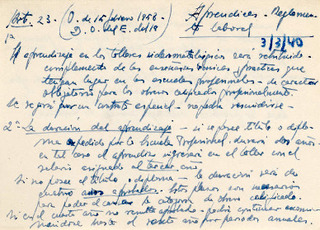 Art. 23. (O. de 16 febrero 1958. Aprendices - Reglamen.
D. O. del E. del 19 laboral
3/3/40
1ª
El aprendizaje en los talleres siderometalúrgicos será retribuido.
complemento de las enseñanzas y prácticas que
tengan lugar en las escuelas profesionales - de carácter
obligatorio para los obreros calificados profesionalmente.
Se regirá por un contrato especial -
2ª - La duración del aprendizaje - si se posee título o diplo-
ma expedido por la Escuela Profesional, durará dos años
en tal caso el aprendiz ingresará en el taller con el
salario asignado al tercer año
Si no posee el título o diploma - la duración será de
cuatro años. Estos plazos son necesarios
para poder alcanzar la categoría de obrero calificado.
Si en el cuarto año no resulta aprobado - podrá continuar
hasta el por periodos anuales.